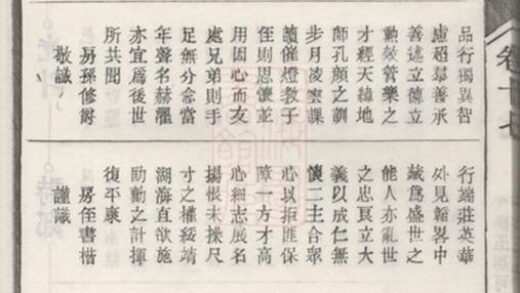 卷十七
品行獨異智
慮超羣善承
善述立德立
勳效管樂之
才經天緯地
師孔顏之訓
步月凌雲課
讀催燈教子
侄則思懷並
用因心而友
處兄弟則手
足無分念當
年聲名赫濯
亦宜爲後世
所共聞
房孫修爵
敬識
行端莊英華
外見韜畧中
藏爲盛世之
能人亦亂世
之忠貞立大
義以成仁無
懷二主合眾
心以拒匪保
障一方才高
心細志展名
揚恨未操尺
寸之權綏靖
湖海直欲施
助勷之計揮
復平康
房侄書楷
謹識